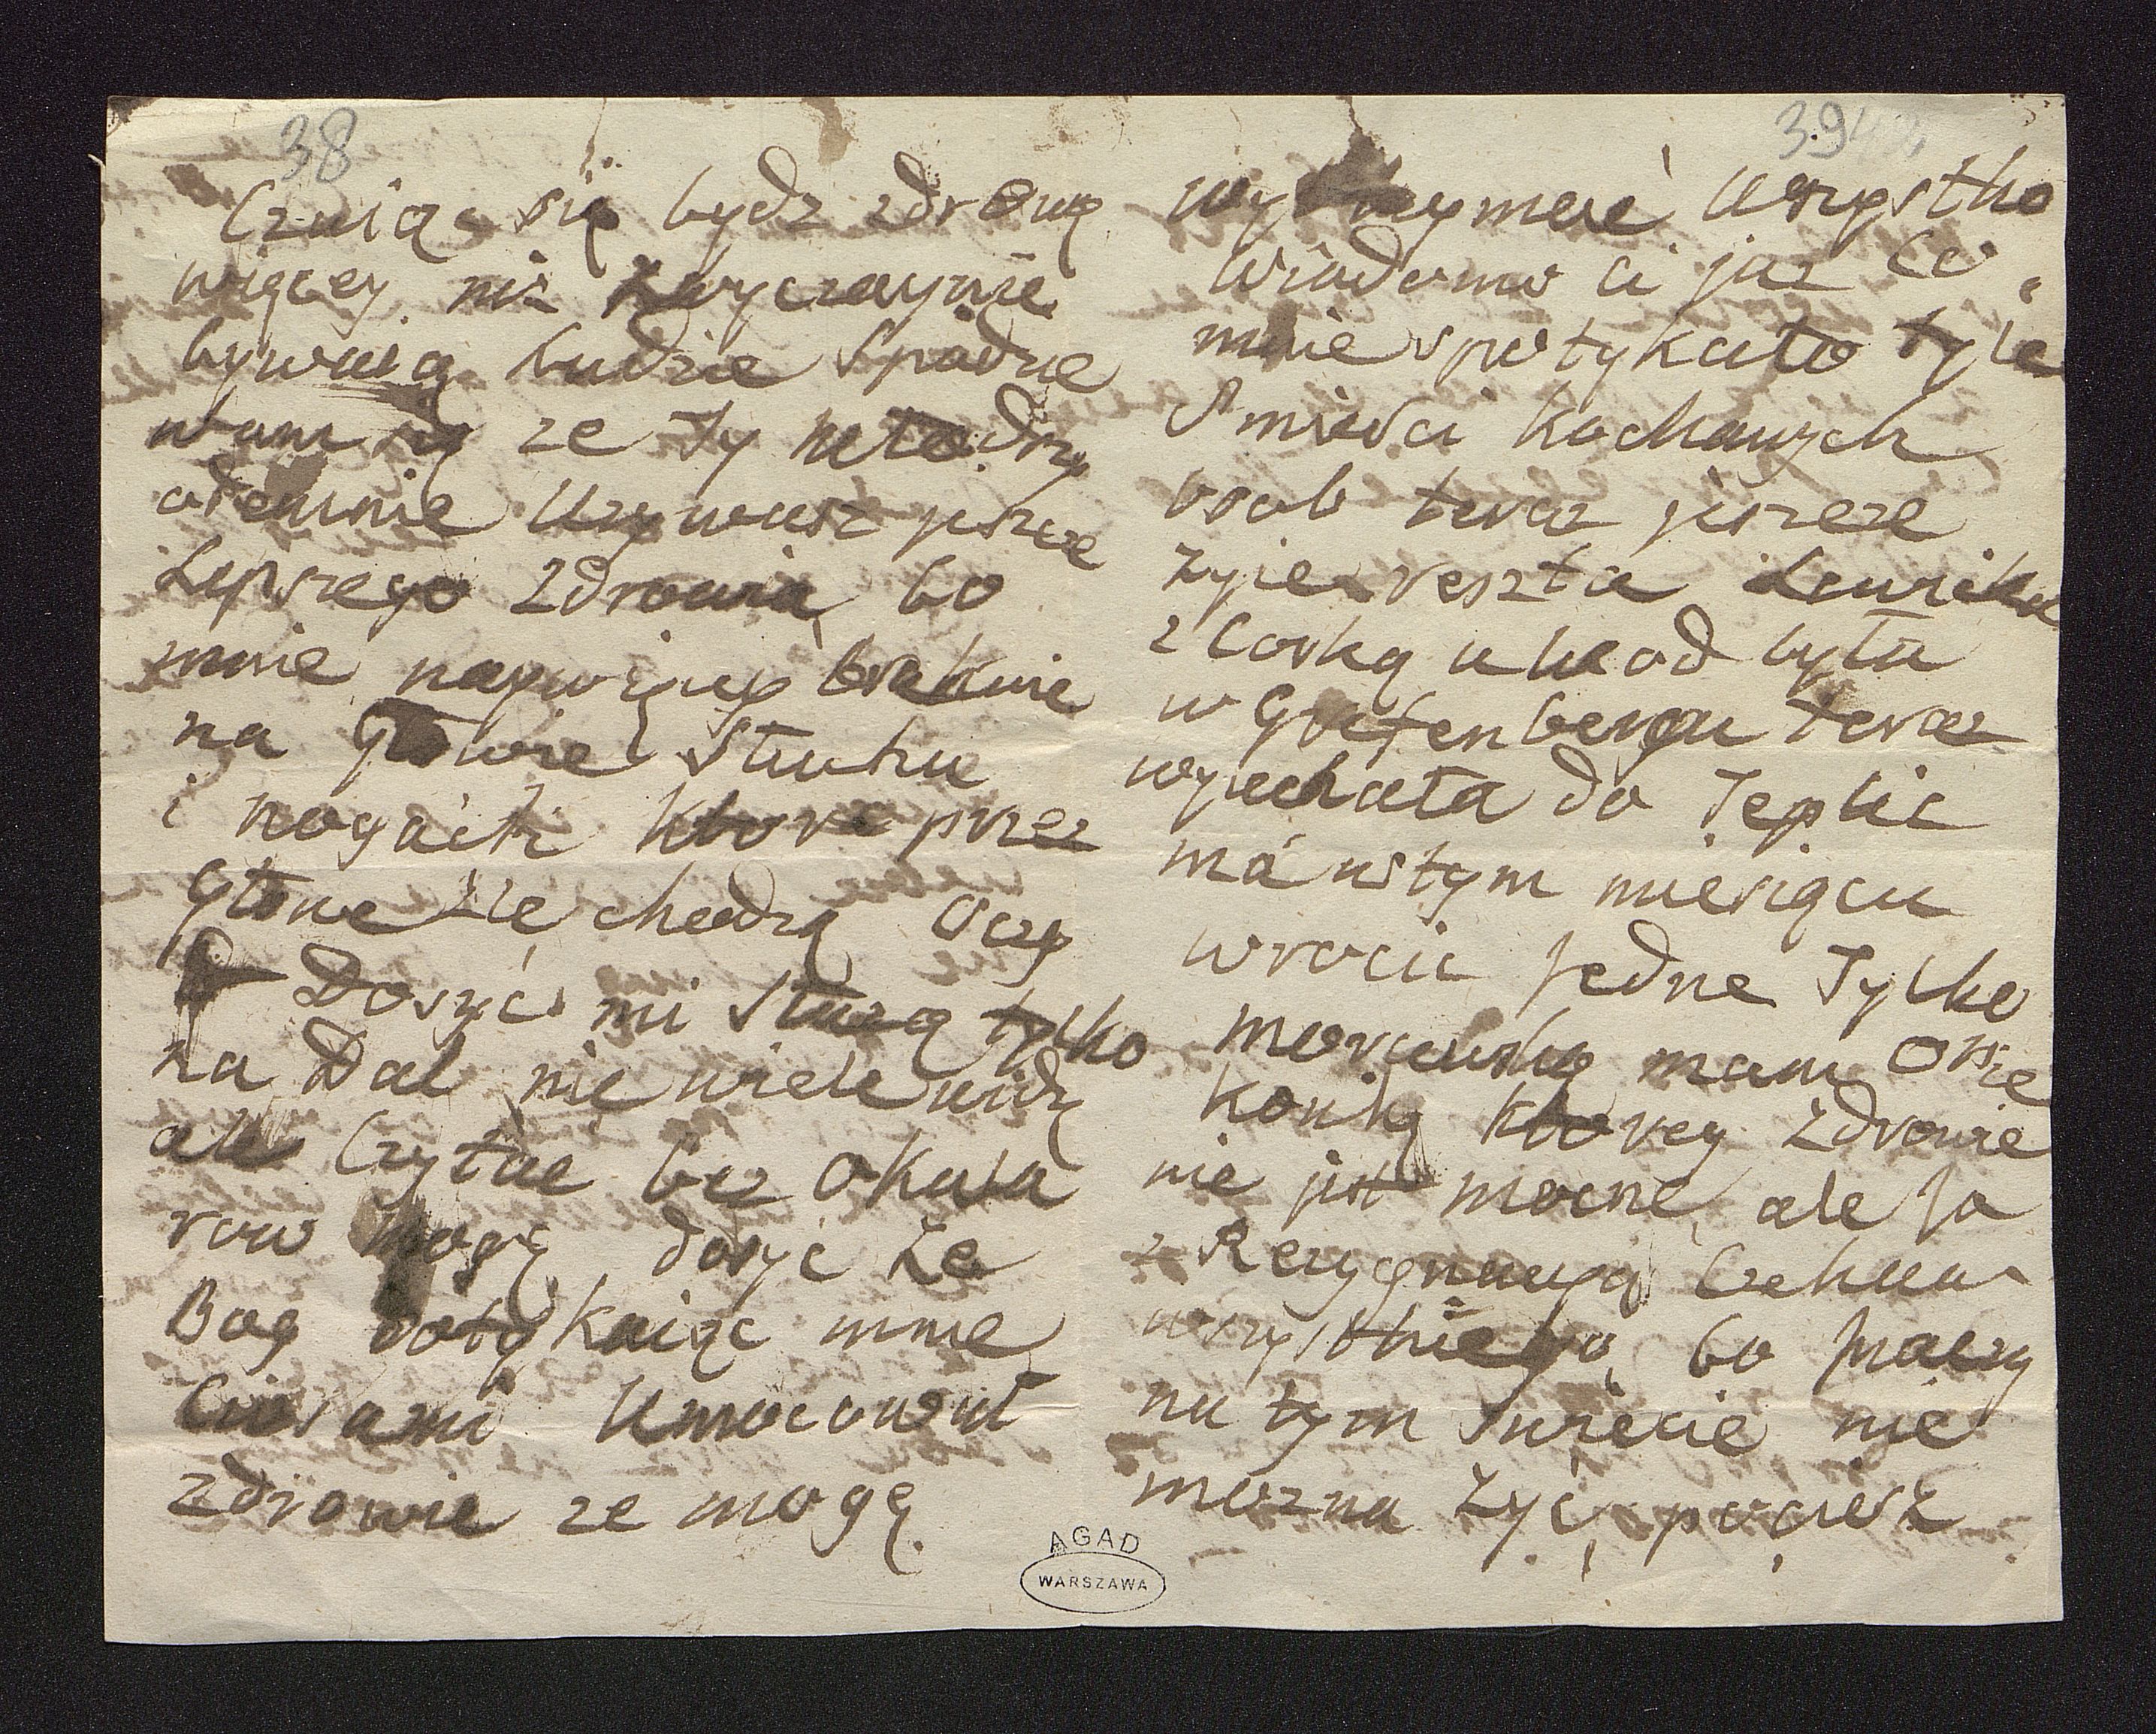 38
Czuiąc się bydz zdrową
więcey niż zwyczaynie
bywaią Ludzie Spodzie
wam się ze Ty Młodszy
odemnie Uzywasz jeszcze
Lepszego zdrowia, bo
mnie naywięcey brakuie
na Głowie Słuchu
i nogach które przez
Głowe źle chodzą Oczy
Dosyć mi Służą tylko
na Dal nie wiele widzę
ale Czytac bez Okula
row mogę dosyć że
Bog dotykaiąc mnie
Ciosami Umocował
zdrowie ze mogę
39
wytrzymać Wszystko
Wiadomo ci juz Co
mnie spotykało tyle
Smierci kochanych
osob teraz jeszcze
żyie reszta
z Corką była
w Grefenbergu teraz
wyiechała do Teplic
ma w tym miesiącu
wrocic Jedne Tylko
Morawską mam
ktorey zdrowie
nie jest mocne, ale Ja
z Rezygnacyą Czekam
wszystkiego, bo
na tym Swiecie nie
mozna żyć, pociesz
AGAD
WARSZAWA